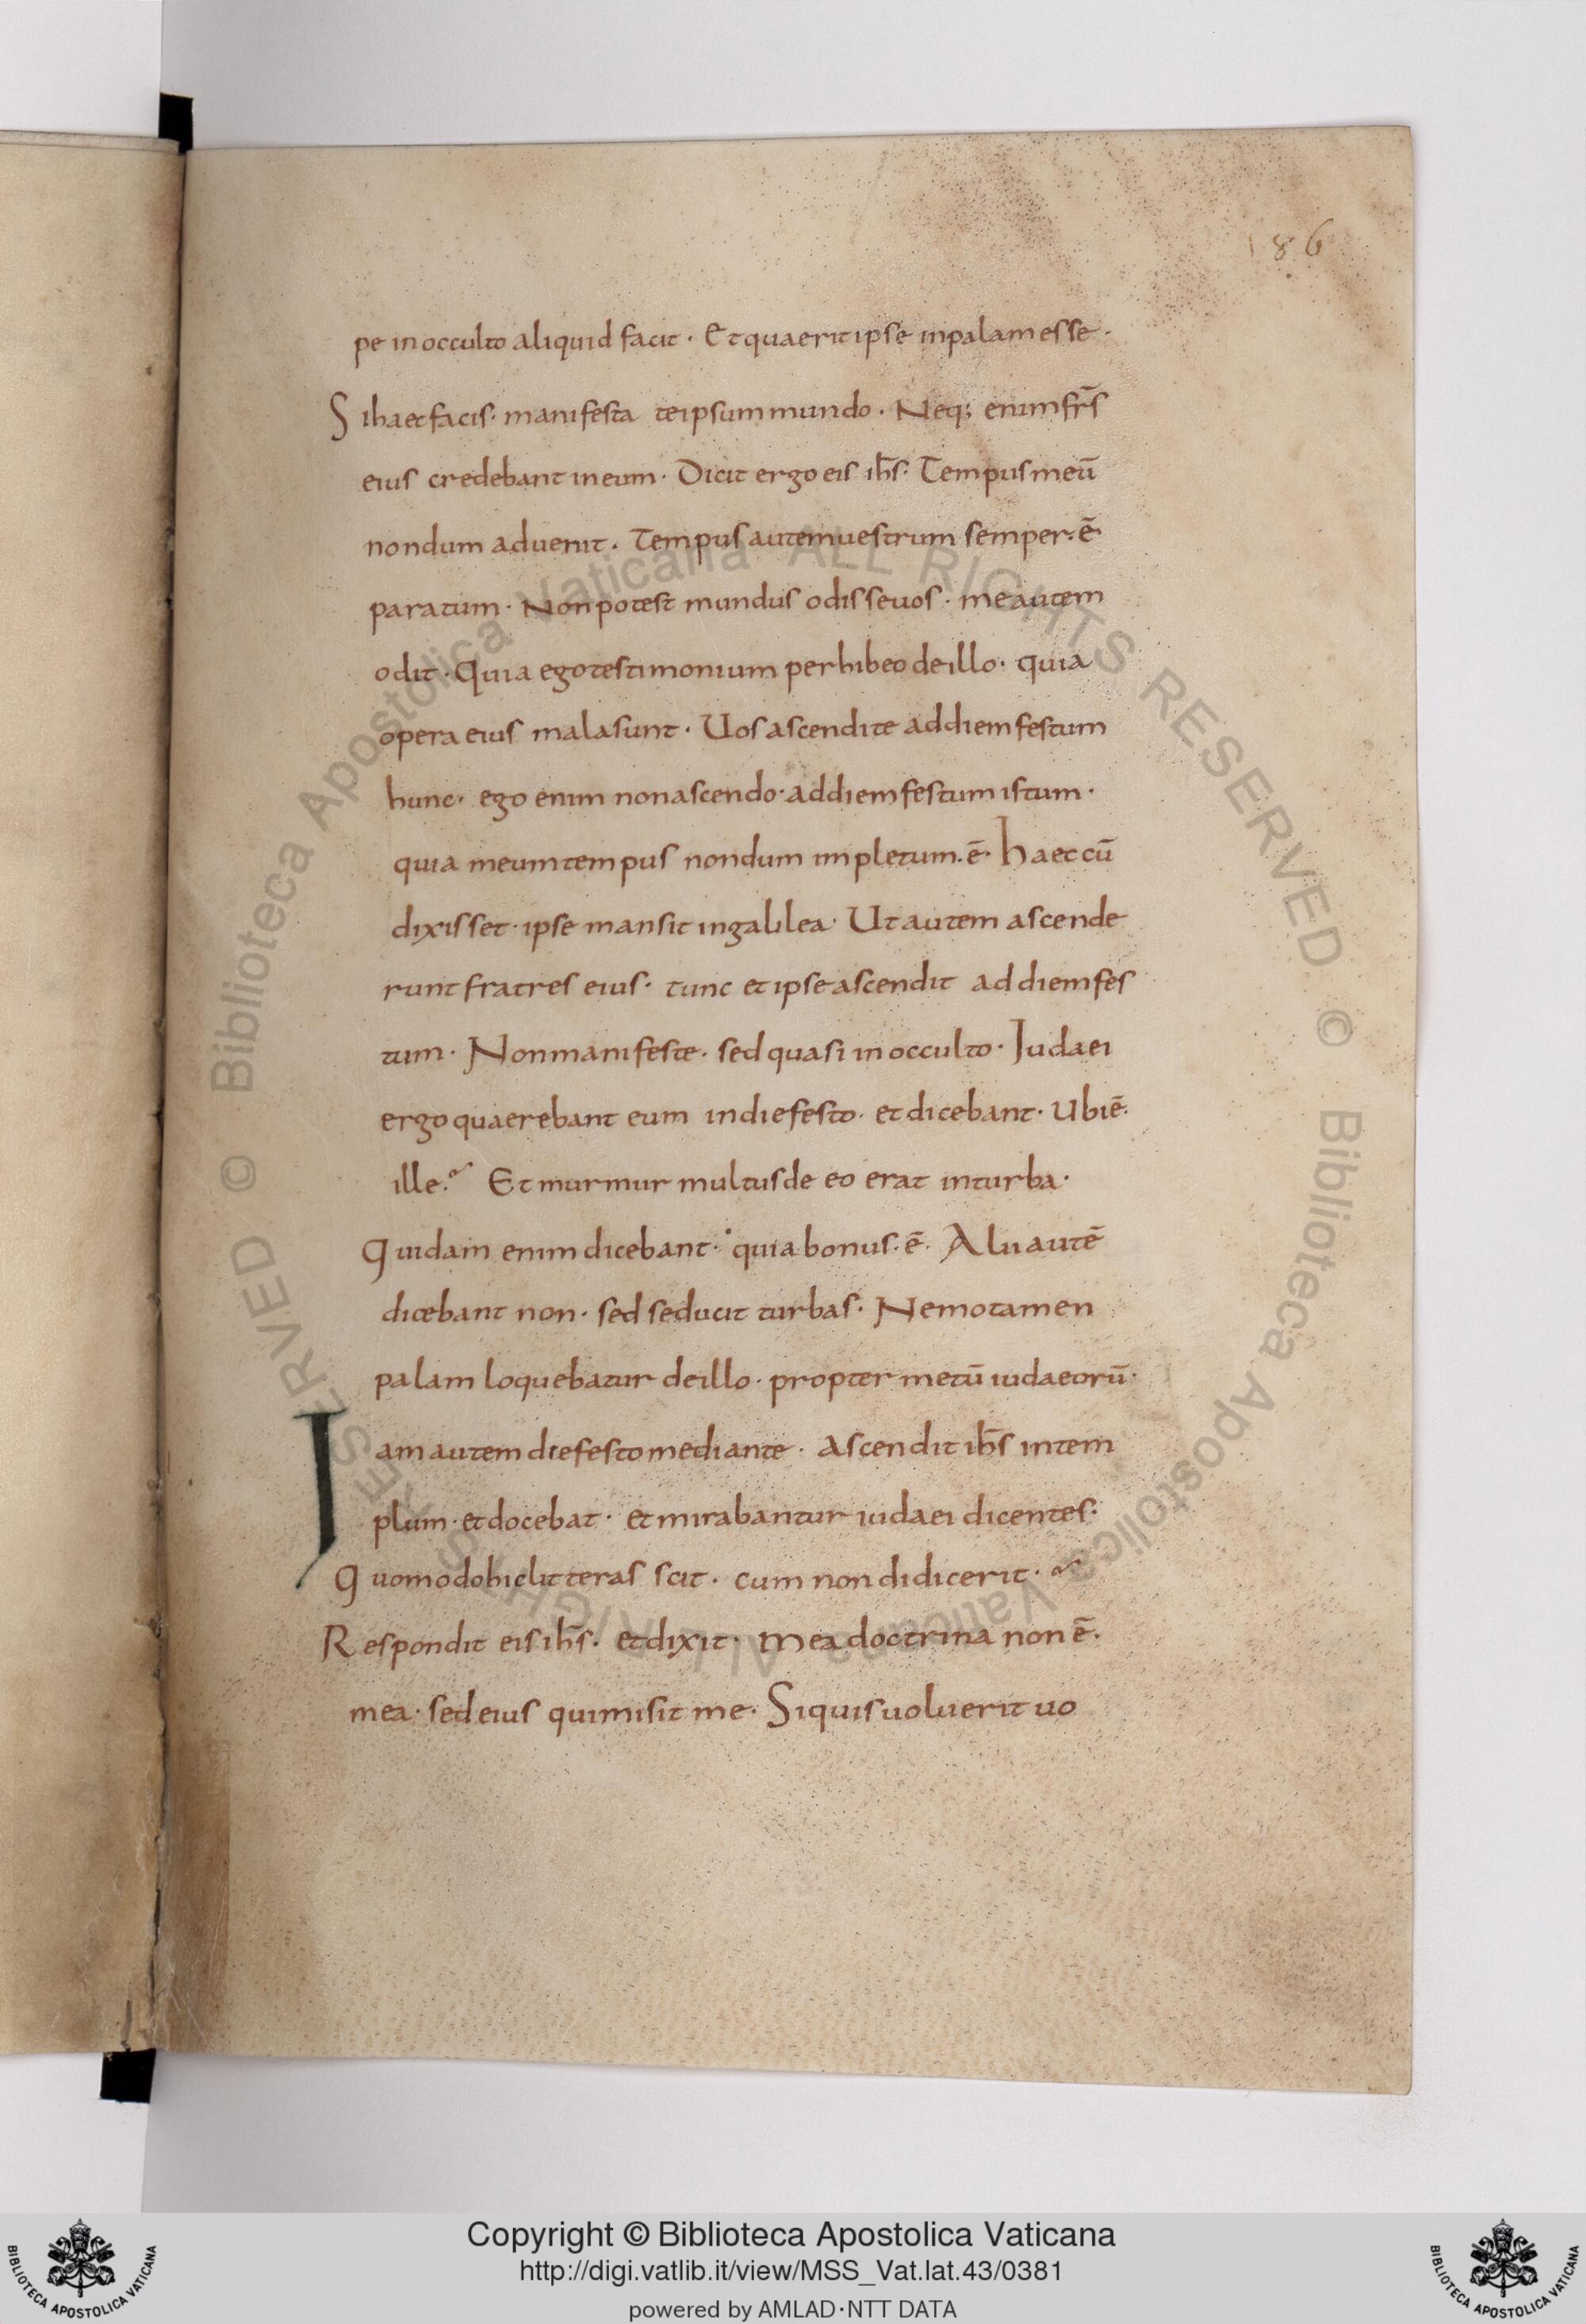 186
pe in occulto aliquid facit · Et quaerit ipse in palam esse ·
Si haec facis · manifesta te ipsum mundo · Neq; enim fr̄s
eius credebant in eum · Dicit ergo eis ih̄s · Tempus meū
nondum aduenit · Tempus autem uestrum semper · ē
paratum · Non potest mundus odisse uos · me autem
odit · Quia ego testimonium perhibeo de illo · quia
opera eius mala sunt · Uos ascendite ad diem festum
hunc · ego enim non ascendo · ad diem festum istum ·
quia meum tempus nondum impletum · ē · haec cū
dixisset · ipse mansit in galilea · Ut autem ascende
runt fratres eius · tunc et ipse ascendit ad diem fes
tum · Non manifeste · sed quasi in occulto · Iudaei
ergo quaerebant eum in die festo · et dicebant · Ubi ē ·
ille ? Et murmur multus de eo erat in turba ·
Quidam enim dicebant · quia bonus · ē · Alii autē
dicebant non · sed seducit turbas · Nemo tamen
palam loquebatur de illo · propter metū iudaeorū ·
Iam autem die festo mediante · Ascendit ih̄s in tem
plum · et docebat · et mirabantur iudaei dicentes ·
Quomodo hic litteras scit · cum non didicerit ?
Respondit eis ih̄s · et dixit · Mea doctrina non ē ·
mea · sed eius qui misit me · Si quis uoluerit uo
© Biblioteca Apostolica Vaticana ALL RIGHTS RESERVED © Biblioteca Apostolica Vaticana ALL RIGHTS RESERVED
Copyright © Biblioteca Apostolica Vaticana
http://digi.vatlib.it/view/MSS_Vat.lat.43/0381
powered by AMLAD·NTT DATA
BIBLIOTECA APOSTOLICA VATICANA
BIBLIOTECA APOSTOLICA VATICANA